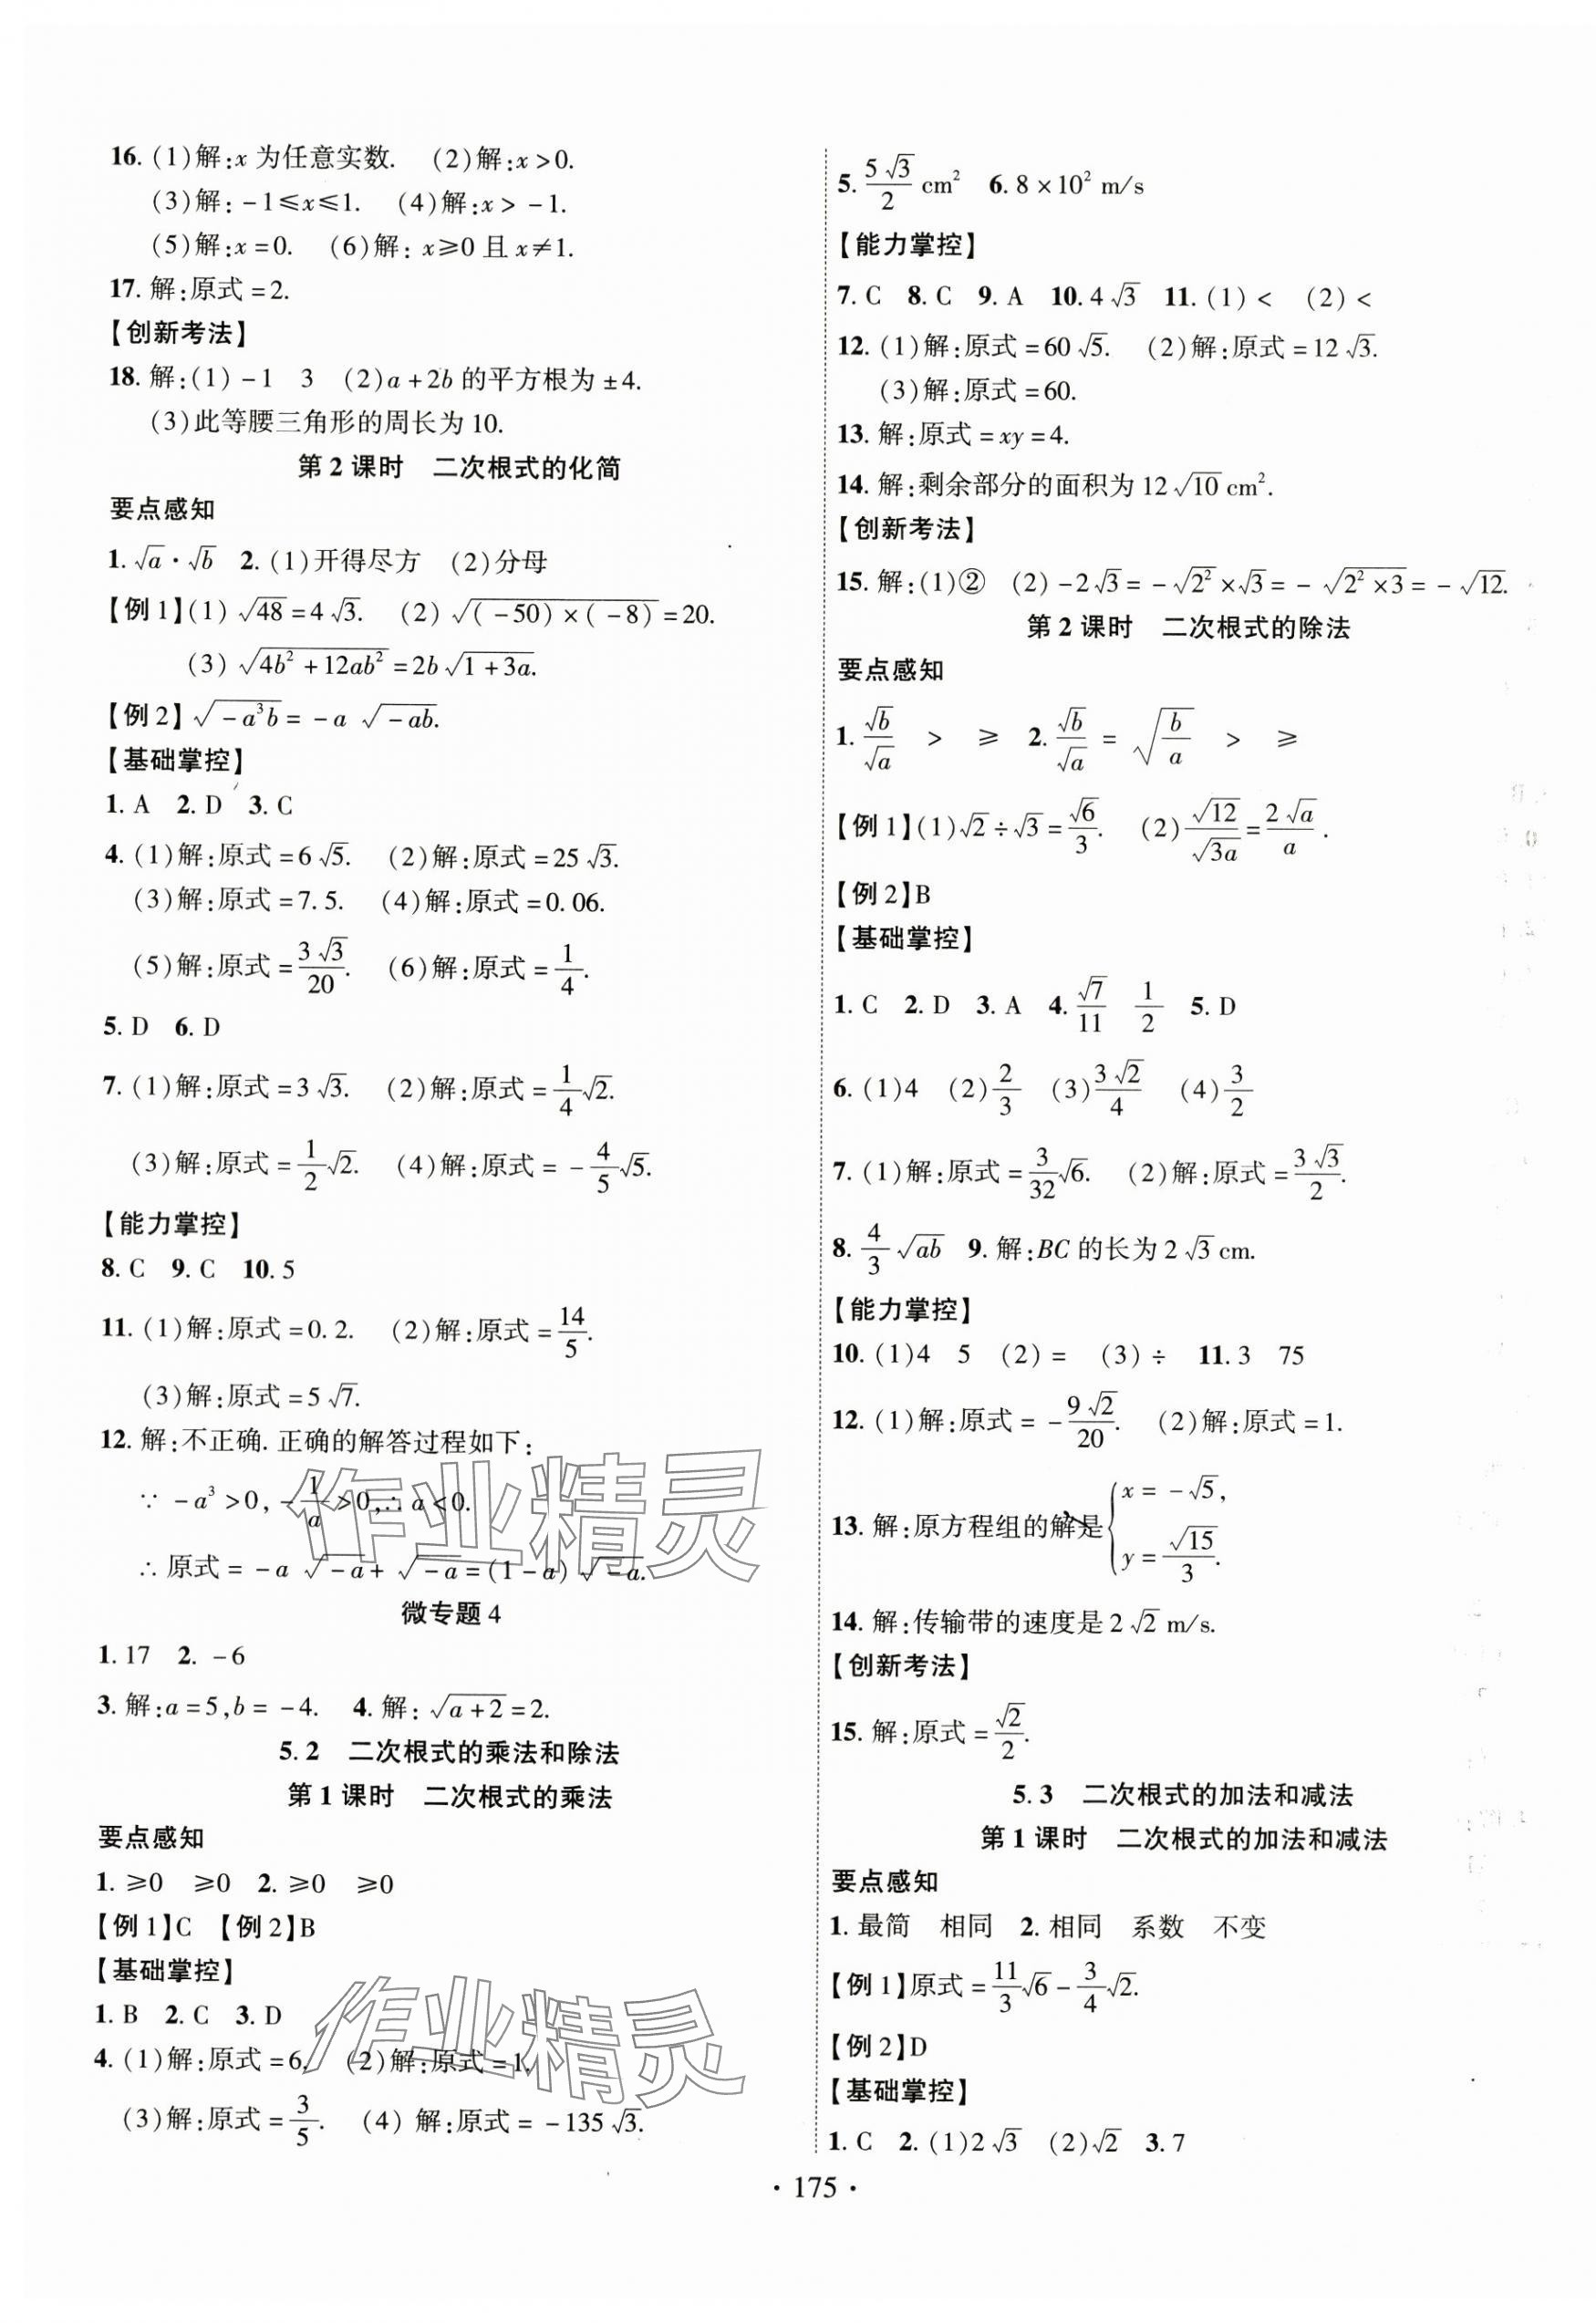 16. (1)解:x 为任意实数. (2)解:x>0.
(3)解: -1≤x≤1. (4)解:x> -1.
(5)解:x=0. (6)解: x≥0 且 x≠1.
17. 解:原式=2.
【创新考法】
18. 解:(1) -1 3 (2)a+2b 的平方根为 ±4.
(3)此等腰三角形的周长为 10.
第 2 课时 二次根式的化简
要点感知
1. √a · √b 2. (1)开得尽方 (2)分母
【例 1】(1) √48=4√3. (2) √((-50)×(-8))=20.
(3) √(4b²+12ab²)=2b√(1+3a).
【例 2】√(-a³b)= -a √(-ab).
【基础掌控】
1. A 2. D 3. C
4. (1)解:原式=6√5. (2)解:原式=25√3.
(3)解:原式=7.5. (4)解:原式=0.06.
(5)解:原式=3√3/20. (6)解:原式=1/4.
5. D 6. D
7. (1)解:原式=3√3. (2)解:原式=1/4√2.
(3)解:原式=1/2√2. (4)解:原式= -4/5√5.
【能力掌控】
8. C 9. C 10. 5
11. (1)解:原式=0.2. (2)解:原式=14/5.
(3)解:原式=5√7.
12. 解:不正确. 正确的解答过程如下:
∵ -a³>0, -1/a>0,∴ a<0.
∴ 原式= -a √(-a)+ √(-a)=(1-a)√(-a).
微专题 4
1. 17 2. -6
3. 解:a=5,b= -4. 4. 解: √(a+2)=2.
5.2 二次根式的乘法和除法
第 1 课时 二次根式的乘法
要点感知
1. ≥0 ≥0 2. ≥0 ≥0
【例 1】C 【例 2】B
【基础掌控】
1. B 2. C 3. D
4. (1)解:原式=6. (2)解:原式=1.
(3)解:原式=3/5. (4) 解:原式= -135√3.
5. 5√3/2 cm² 6. 8×10² m/s
【能力掌控】
7. C 8. C 9. A 10. 4√3 11. (1)< (2)<
12. (1)解:原式=60√5. (2)解:原式=12√3.
(3)解:原式=60.
13. 解:原式=xy=4.
14. 解:剩余部分的面积为 12√10 cm².
【创新考法】
15. 解:(1)② (2) -2√3= -√2²×√3= -√(2²×3)= -√12.
第 2 课时 二次根式的除法
要点感知
1. √b/√a > ≥ 2. √b/√a = √(b/a) > ≥
【例 1】(1)√2÷√3=√6/3. (2)√12/√3a=2√a/a.
【例 2】B
【基础掌控】
1. C 2. D 3. A 4. √7/11 1/2 5. D
6. (1)4 (2)2/3 (3)3√2/4 (4)3/2
7. (1)解:原式=3/32√6. (2)解:原式=3√3/2.
8. 4/3√ab 9. 解:BC 的长为 2√3 cm.
【能力掌控】
10. (1)4 5 (2)= (3)÷ 11. 3 75
12. (1)解:原式= -9√2/20. (2)解:原式=1.
13. 解:原方程组的解是{x= -√5, y=√15/3.
14. 解:传输带的速度是 2√2 m/s.
【创新考法】
15. 解:原式=√2/2.
5.3 二次根式的加法和减法
第 1 课时 二次根式的加法和减法
要点感知
1. 最简 相同 2. 相同 系数 不变
【例 1】原式=11/3√6-3/4√2.
【例 2】D
【基础掌控】
1. C 2. (1)2√3 (2)√2 3. 7
· 175 ·
作业精灵
作业精灵